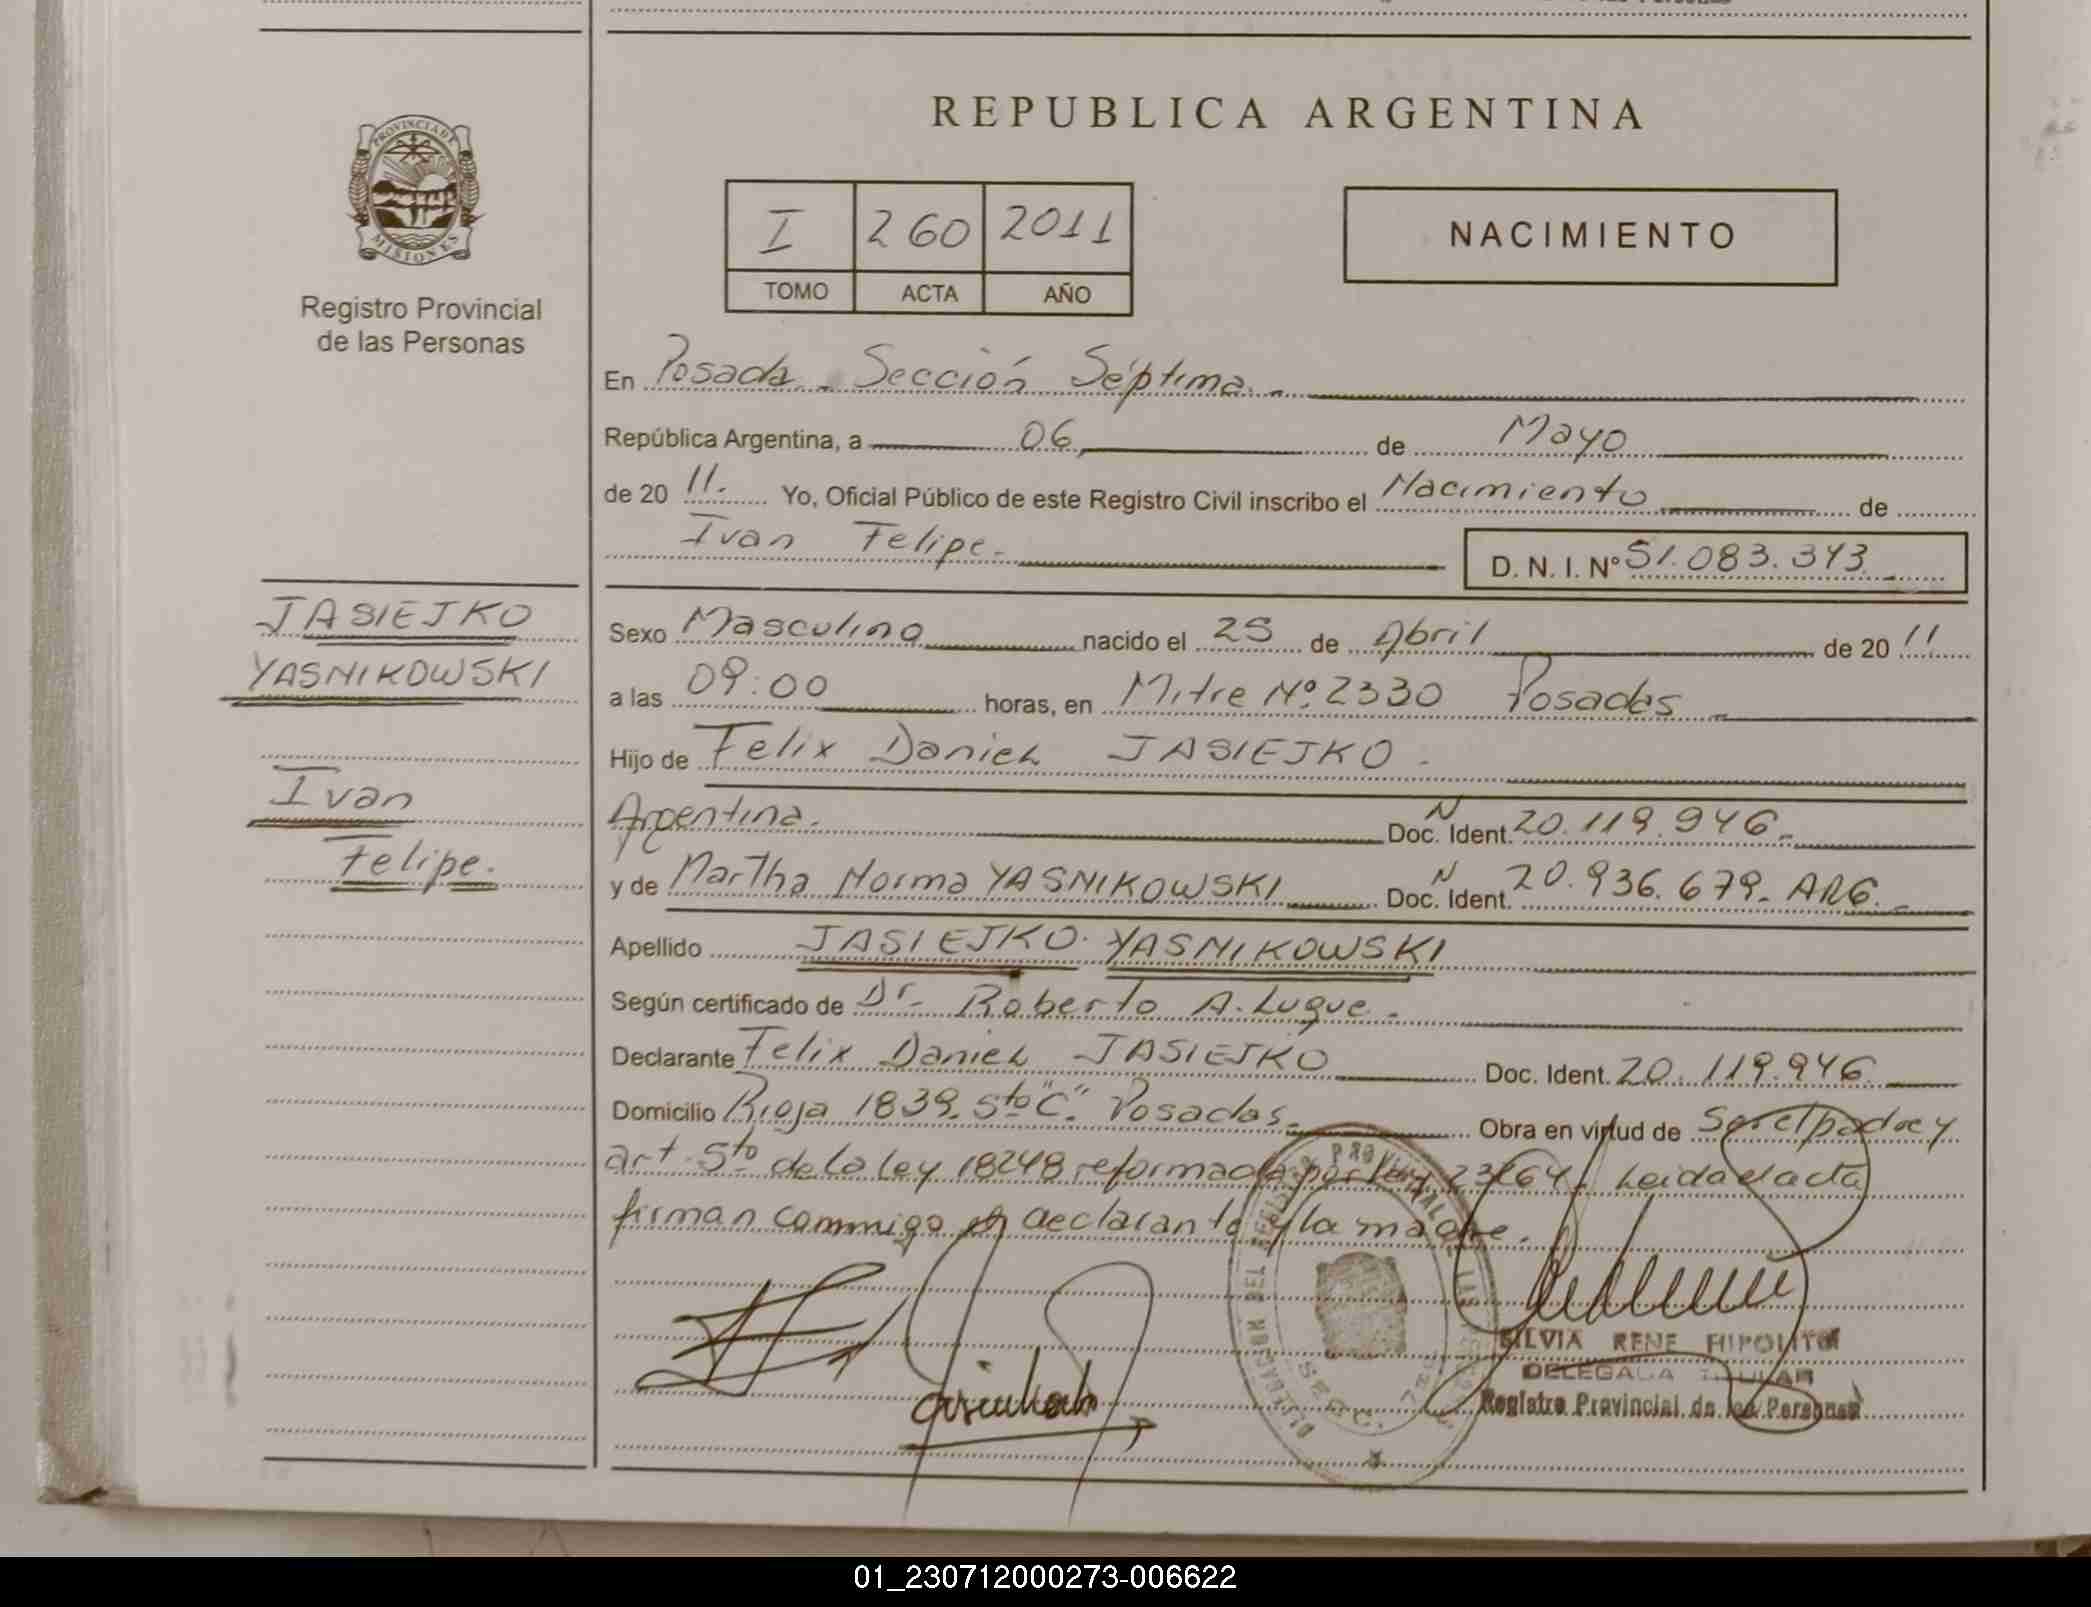 REPUBLICA ARGENTINA
PROVINCIA DE
MISIONES
Registro Provincial
de las Personas
I 260 2011
TOMO ACTA AÑO
NACIMIENTO
En Posadas - Sección Séptima.-
República Argentina, a 06 de Mayo
de 20 11. Yo, Oficial Público de este Registro Civil inscribo el Nacimiento de
Ivan Felipe.-
D. N. I. Nº 51.083.343.-
JASIEJKO
YASNIKOWSKI
Ivan
Felipe.
Sexo Masculino nacido el 25 de Abril de 20 11
a las 09:00 horas, en Mitre Nº.2330 Posadas
Hijo de Felix Daniel JASIEJKO.
Argentina. N Doc. Ident. 20.119.946.-
y de Martha Norma YASNIKOWSKI N Doc. Ident. 20.936.679. ARG.-
Apellido JASIEJKO. YASNIKOWSKI
Según certificado de Dr. Roberto A. Luque.-
Declarante Felix Daniel JASIEJKO Doc. Ident. 20.119.946
Domicilio Rioja 1839. Sto "C". Posadas.- Obra en virtud de Ser el padre y
art 5to de la ley 18248 reformada por ley 23264. Leida el acta
firman commigo el declarante y la madre.
SILVIA RENE HIPOLITO
DELEGADA TITULAR
Registro Provincial de las Personas
01_230712000273-006622